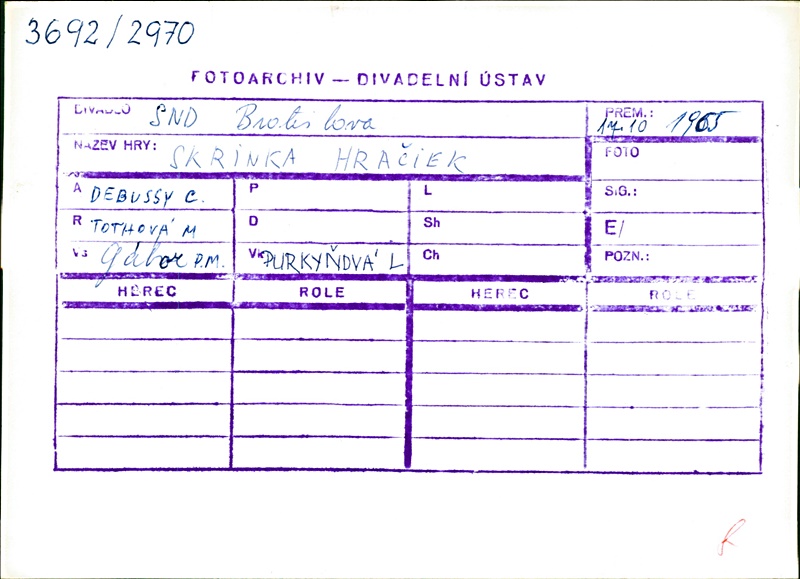 3692/2970
FOTOARCHIV — DIVADELNÍ ÚSTAV
DIVADLO SND Bratislava
PREM.: 17.10 1965
NÁZEV HRY: SKRINKA HRAČIEK
FOTO
A DEBUSSY C. P L SIG.:
R TOTHOVÁ M D Sh E/
Vs Gábor P.M. Vk PURKYŇOVÁ L Ch POZN.:
HEREC ROLE HEREC ROLE